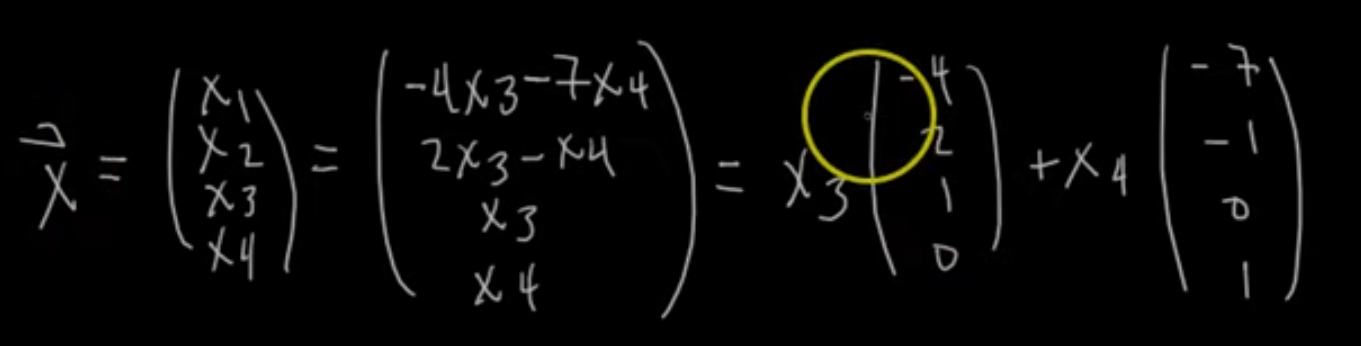 $\vec{x} = \begin{pmatrix} x_1 \\ x_2 \\ x_3 \\ x_4 \end{pmatrix} = \begin{pmatrix} -4x_3 - 7x_4 \\ 2x_3 - x_4 \\ x_3 \\ x_4 \end{pmatrix} = x_3 \begin{pmatrix} -4 \\ 2 \\ 1 \\ 0 \end{pmatrix} + x_4 \begin{pmatrix} -7 \\ -1 \\ 0 \\ 1 \end{pmatrix}$